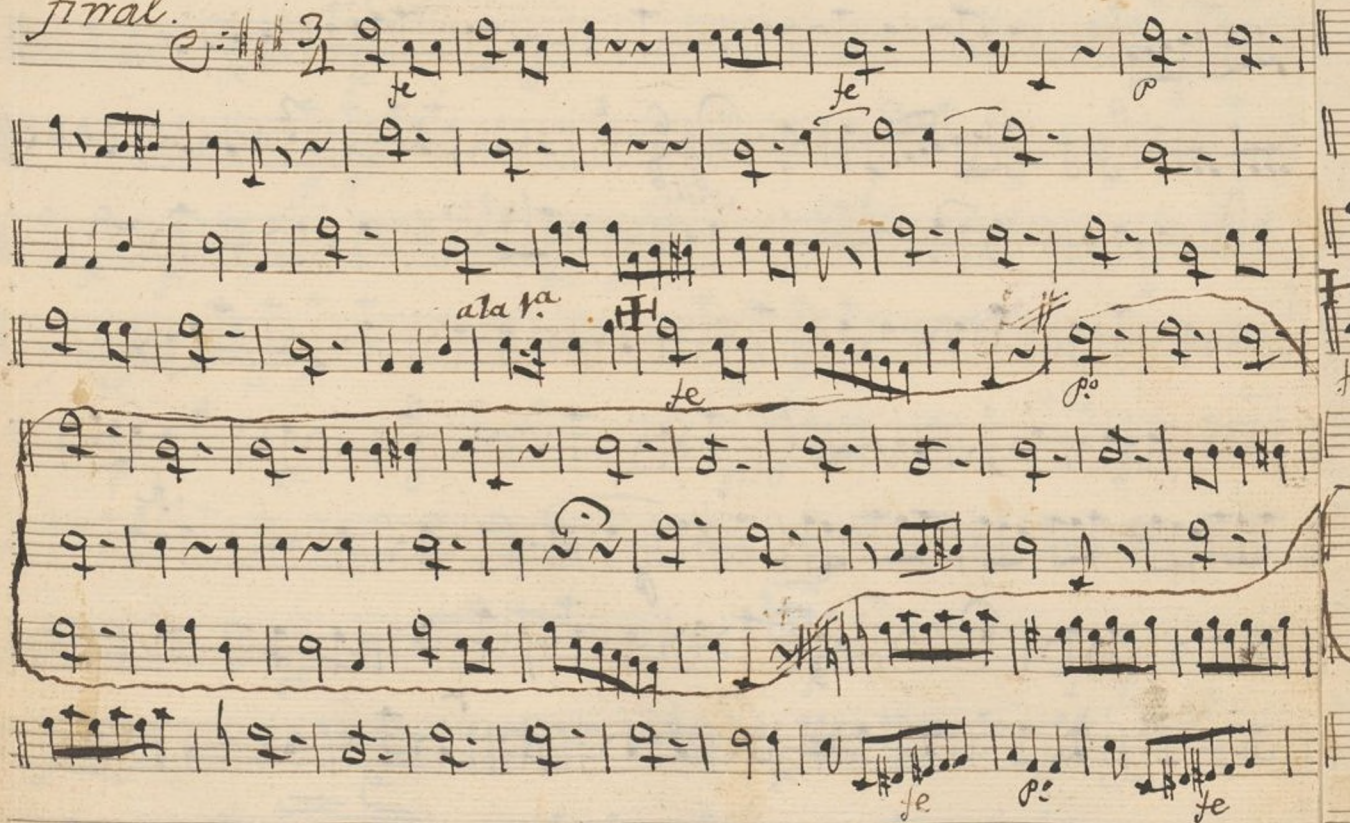 final.
3/4
fe fe p
ala 1ª
fe pº
fe pº fe